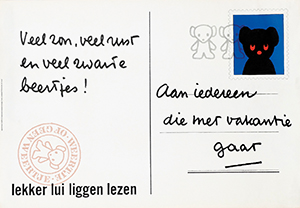 Veel zon, veel rust
en veel zwarte
beertjes!
Aan iedereen
die met vakantie
gaat
lekker lui liggen lezen